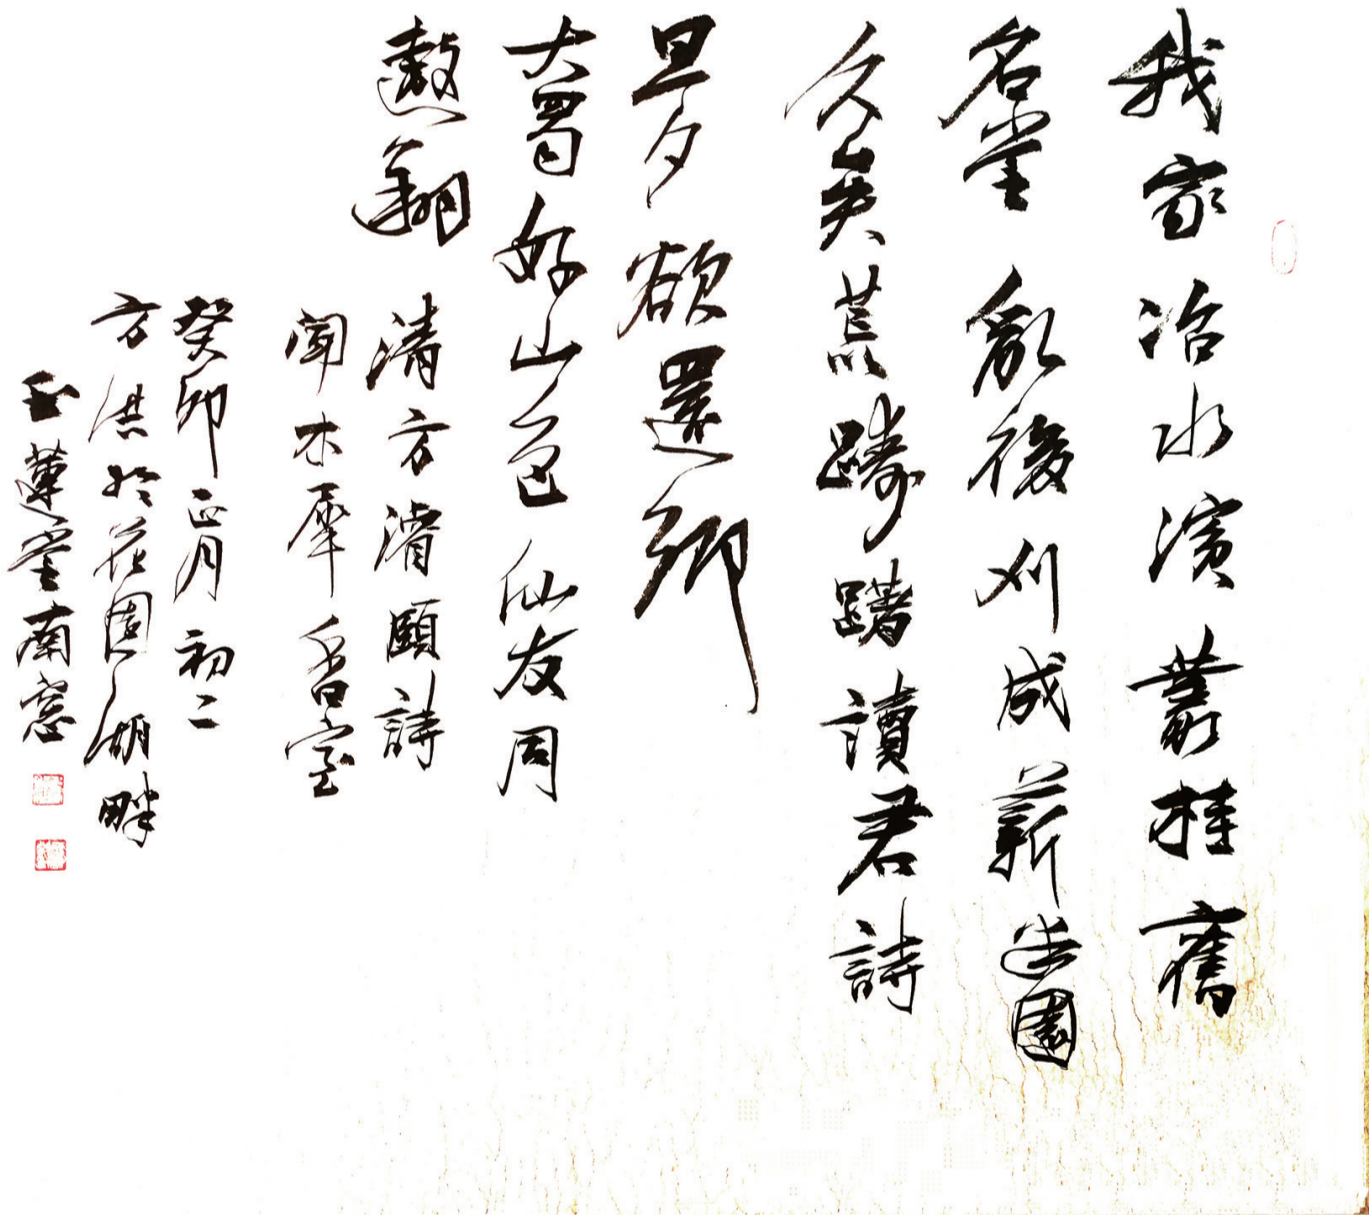 我家冶水濱叢桂舊
名堂亂後刈成薪迷園
久矣荒躊躇讀君詩
旦夕欲還鄉
大蜀好山色仙友同
遨翔
清方濬頤詩
聞木犀香室
癸卯正月初二
方洪於花園湖畔
玉蓮堂南窓